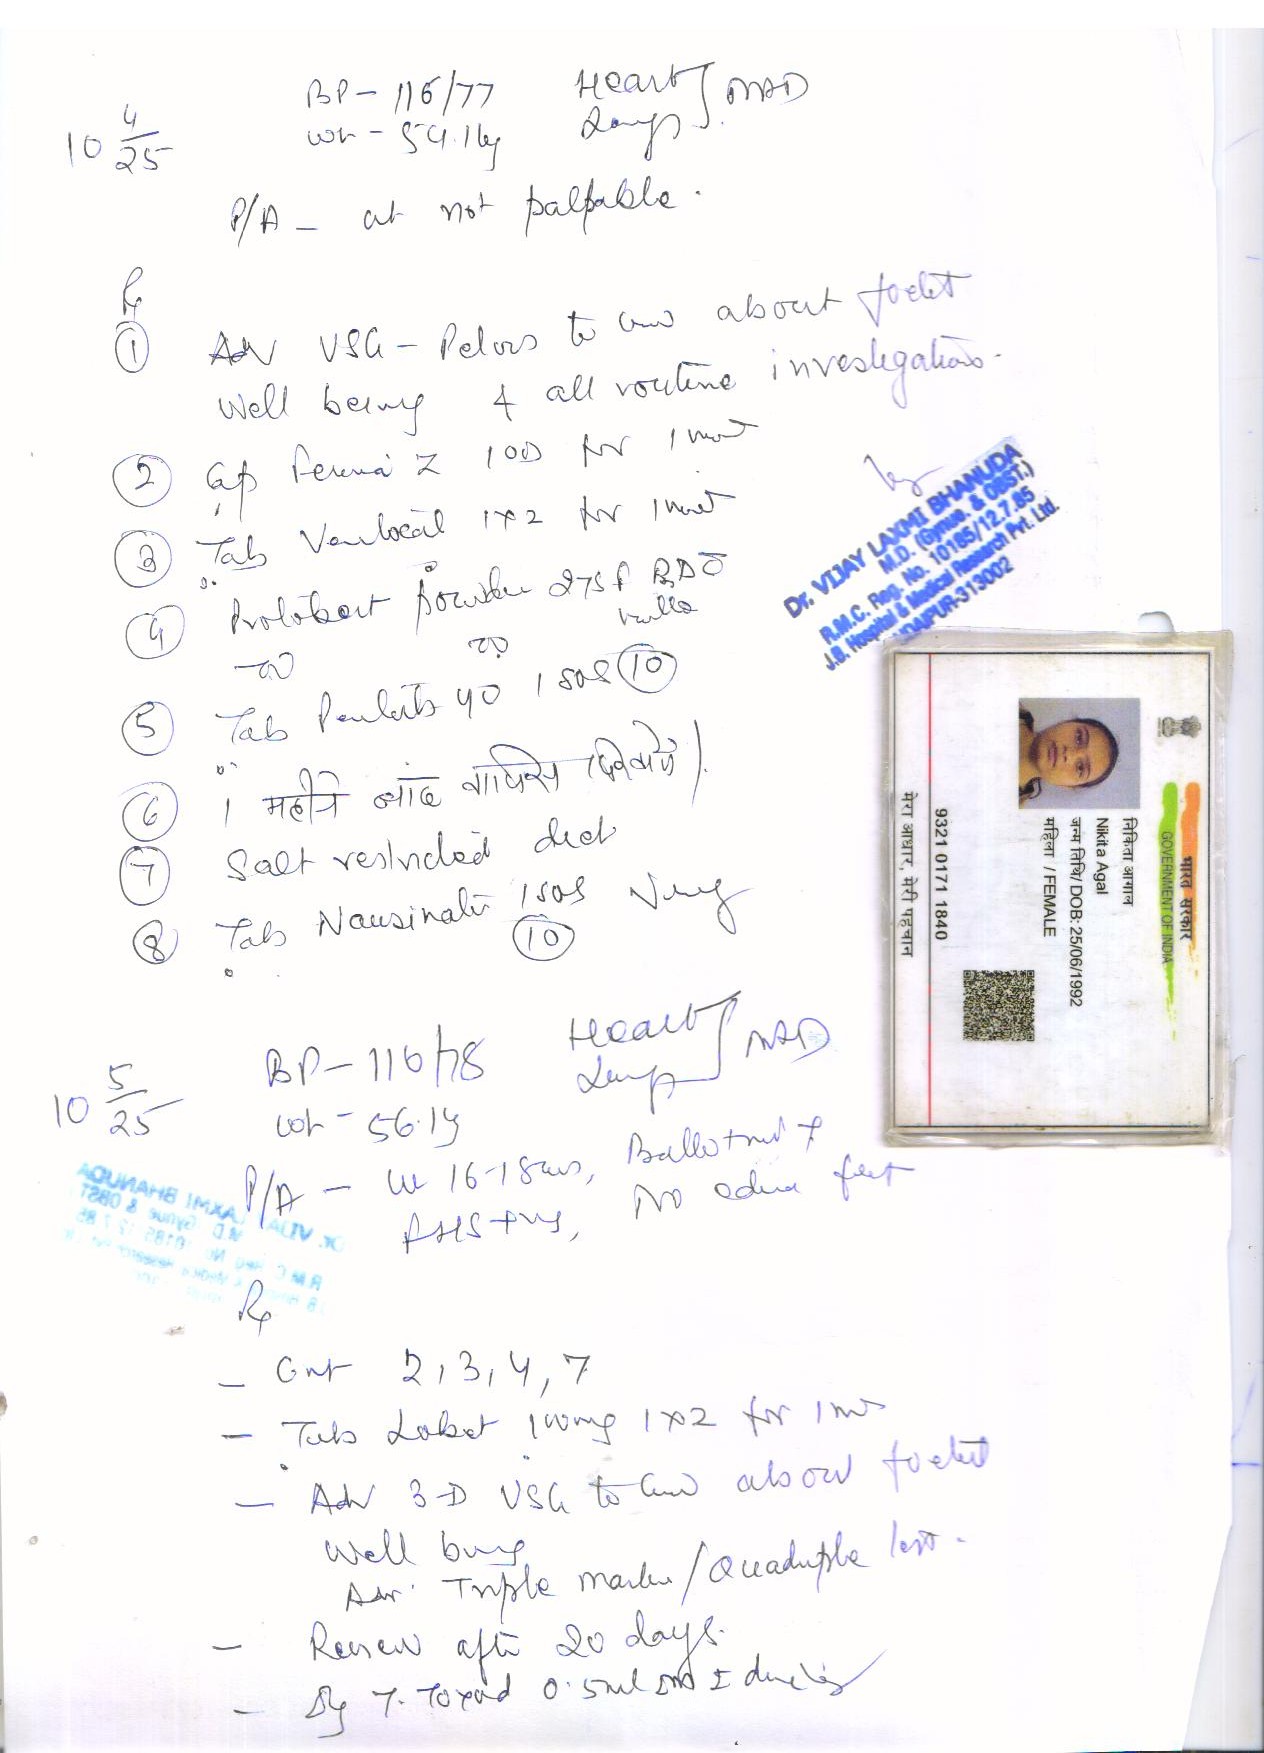 10 4/25
BP - 116/77
Heart
Lungs } NAD
wt - 54.1kg
P/A - ut not palpable.
Rx
① Adv USG - Pelvis to know about foetal
well being & all routine investigations.
② Cap 1 OD for 1 month
③ Tab 1x2 for 1 month
④ powder 2TSF BD
⑤ Tab 40 1 SOS ⑩
⑥ 1 महीने बाद वापिस दिखावें।
⑦ Salt restricted diet
⑧ Tab 1 SOS
⑩
Dr. VIJAY LAXMI BHANUDA
M.D. (Gynue. & OBST.)
R.M.C. Reg. No. 10185/12.7.85
J.B. Hospital & Medical Research Pvt. Ltd.
UDAIPUR-313002
भारत सरकार
GOVERNMENT OF INDIA
निकिता आगाल
Nikita Agal
जन्म तिथि/ DOB: 25/06/1992
महिला / FEMALE
9321 0171 1840
मेरा आधार, मेरी पहचान
10 5/25
BP - 116/78
Heart
Lungs } NAD
wt - 56.1kg
P/A - ut 16-18wks, Ballotment +
FHS +ve, No edema feet
Rx
- Cont 2, 3, 4, 7
- Tab Lobet 100mg 1x2 for 1 month
- Adv 3-D USG to know about foetal
well being
Adv. Triple marker/Quadruple test.
- Review after 20 days.
- T. Toxoid 0.5ml